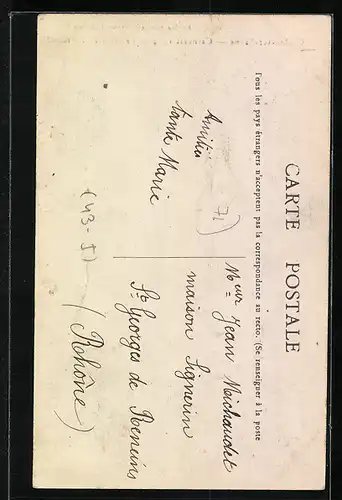 CARTE POSTALE
Tous les pays étrangers n'acceptent pas la correspondance au recto. (Se renseigner à la poste
Amitiés
tante Marie
71
(43-5)
Meur Jean Michaudet
maison Signerin
St Georges de Reneins
(Rhône)